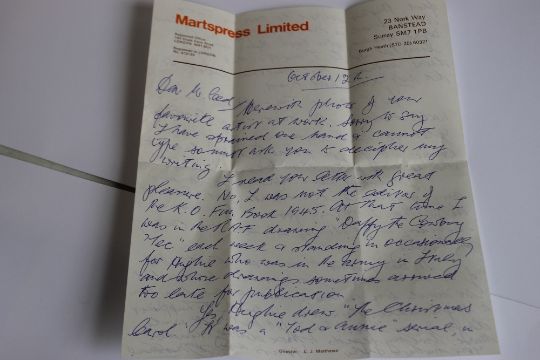 Martspress Limited
23 Nork Way
BANSTEAD
Surrey SM7 1PB
Burgh Heath
October 12th
Dear Mr Herewith photo of your
favourite artist at work. Sorry to say
I have sprained one hand & cannot
type so must ask you to decipher my
writing.
I read your letter with great
pleasure. No, I was not the editor of
the K.O. Fun Book 1945. At that time I
was in the RAF drawing "Daffy the Cowboy
'Tec" each week & standing in occasionally
for Hughie who was in the Army in Italy
and whose drawings sometimes arrived
too late for publication.
Yes, Hughie drew "The Christmas
Carol". It was a "Ted & Annie" serial, in
Director: L. J. Matthews